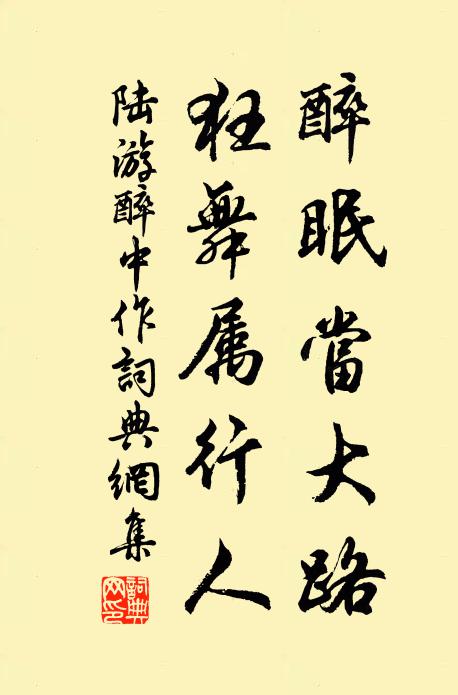 醉眠當大路
狂舞属行人
陆游醉中作詞典網集
詞典